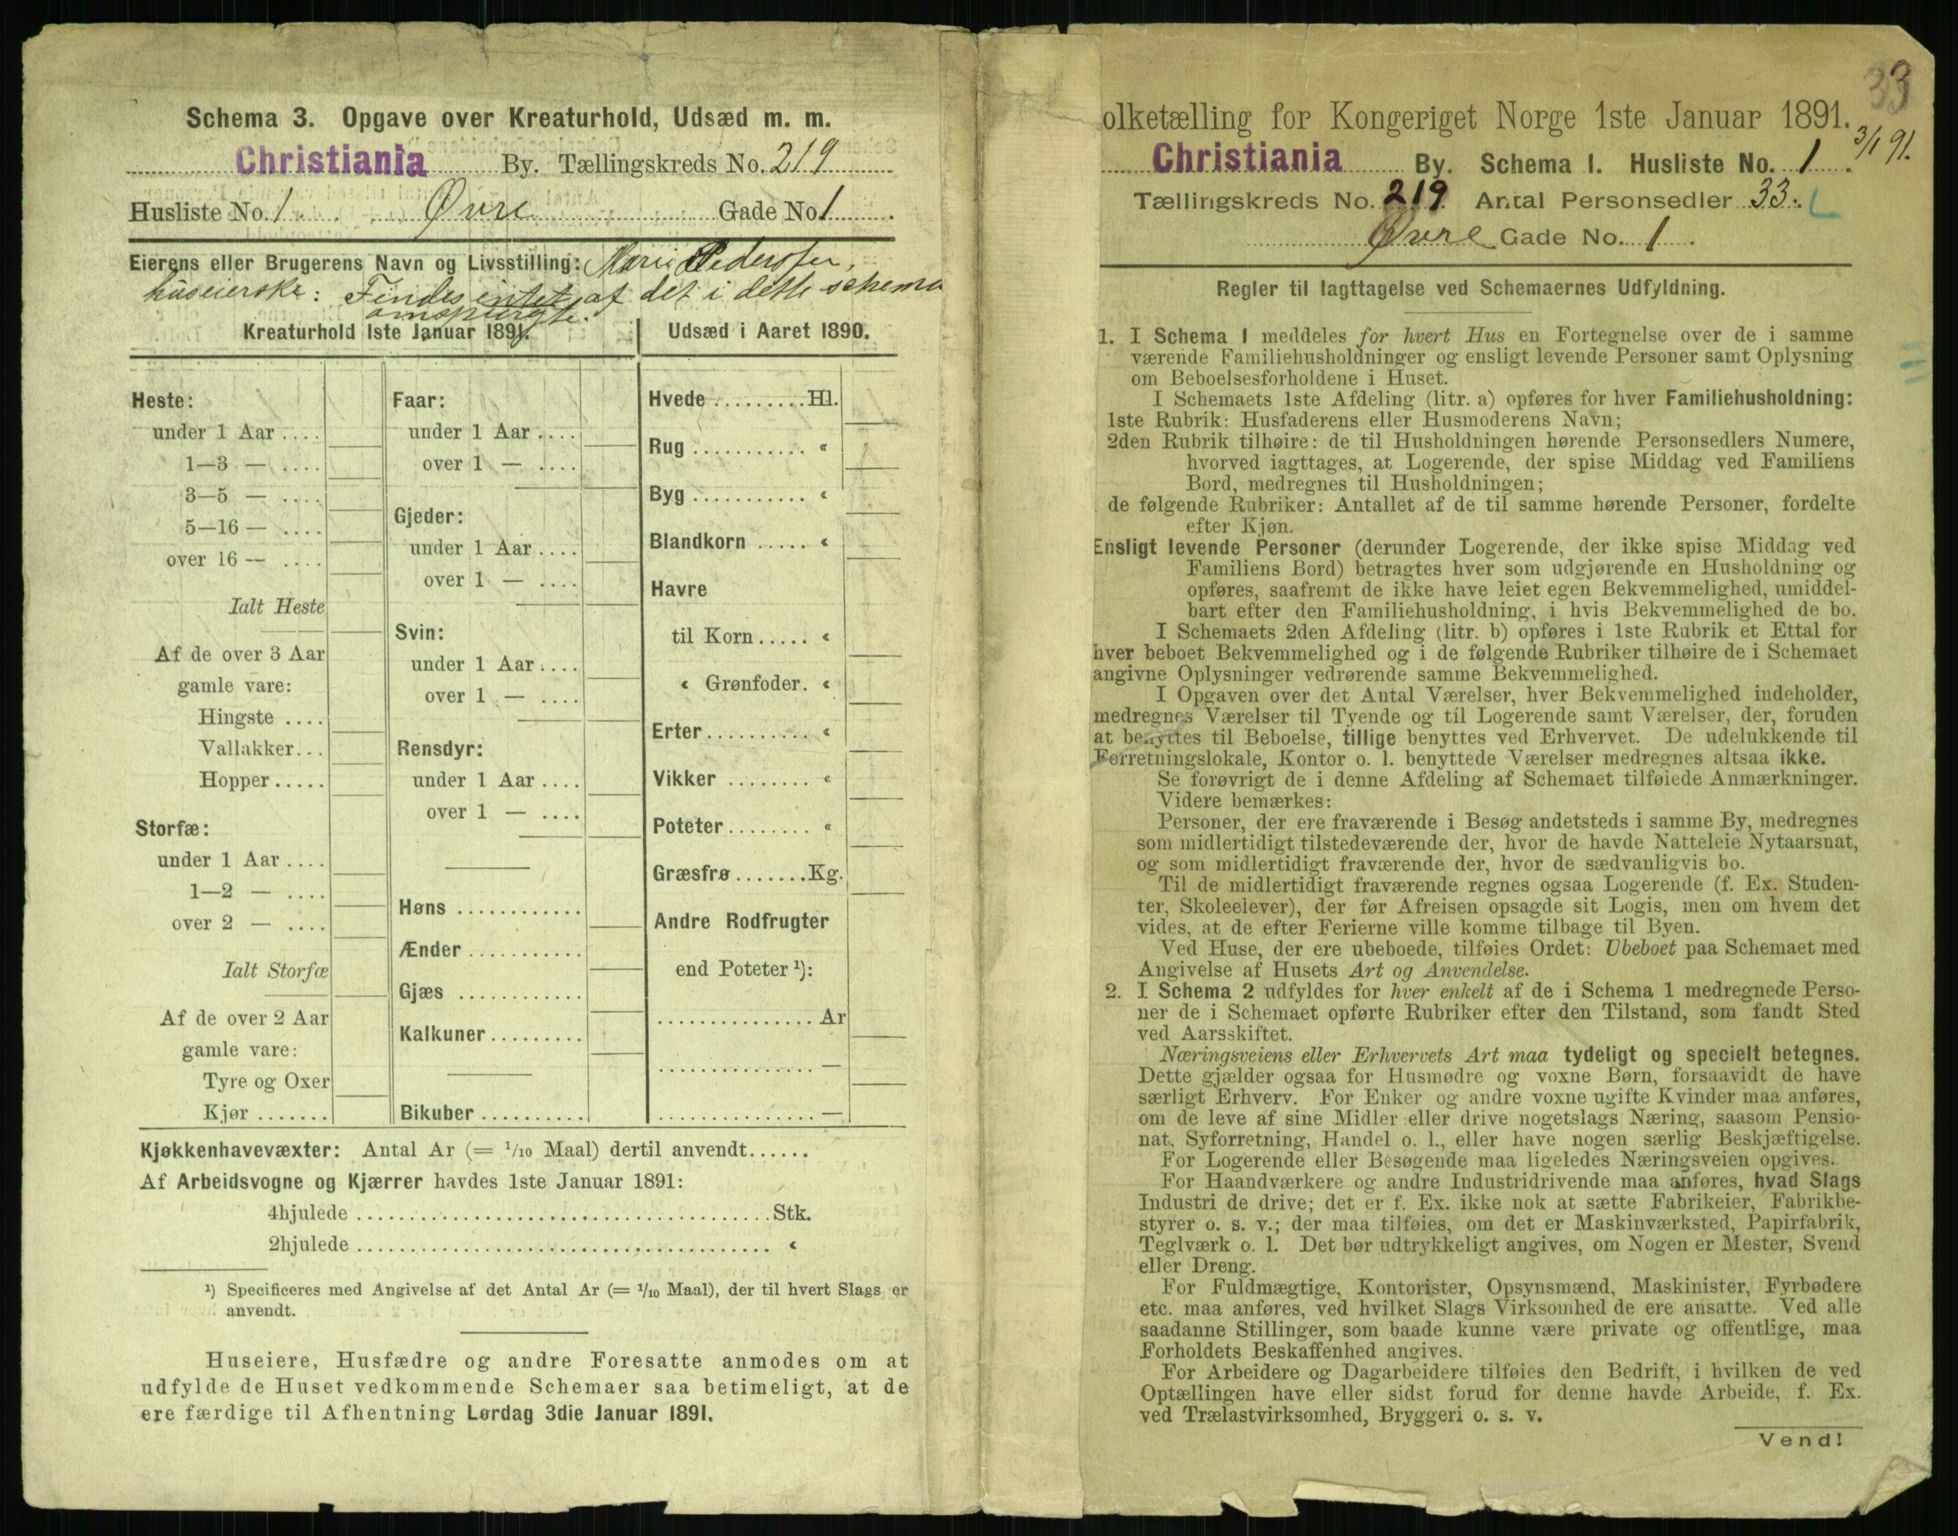 Schema 3. Opgave over Kreaturhold, Udsæd m. m.
Christiania By. Tællingskreds No. 219
Husliste No. 1 Øvre Gade No 1
Eierens eller Brugerens Navn og Livsstilling: Marie Pedersen,
huseierske: Findes intet af det i dette schema
omspurgte.
Kreaturhold 1ste Januar 1891. Udsæd i Aaret 1890.
Heste:
under 1 Aar ....
1—3 — ....
3—5 — ....
5—16 — ....
over 16 — ....
Ialt Heste
Af de over 3 Aar
gamle vare:
Hingste ....
Vallakker...
Hopper.....
Storfæ:
under 1 Aar ....
1—2 — ....
over 2 — ....
Ialt Storfæ
Af de over 2 Aar
gamle vare:
Tyre og Oxer
Kjør .......
Faar:
under 1 Aar ....
over 1 — ....
Gjeder:
under 1 Aar ....
over 1 — ....
Svin:
under 1 Aar ....
over 1 — ....
Rensdyr:
under 1 Aar ....
over 1 — ....
Høns ............
Ænder ...........
Gjæs ............
Kalkuner.........
Bikuber ..........
Hvede .........Hl.
Rug ........... «
Byg ........... «
Blandkorn ..... «
Havre
til Korn ..... «
« Grønfoder. «
Erter.......... «
Vikker ........ «
Poteter........ «
Græsfrø.......Kg.
Andre Rodfrugter
end Poteter ¹):
............... Ar
............... —
............... —
Kjøkkenhavevæxter: Antal Ar (= 1/10 Maal) dertil anvendt......
Af Arbeidsvogne og Kjærrer havdes 1ste Januar 1891:
4hjulede ........................................Stk.
2hjulede ........................................ «
¹) Specificeres med Angivelse af det Antal Ar (= 1/10 Maal), der til hvert Slags er
anvendt.
Huseiere, Husfædre og andre Foresatte anmodes om at
udfylde de Huset vedkommende Schemaer saa betimeligt, at de
ere færdige til Afhentning Lørdag 3die Januar 1891.
33
olketælling for Kongeriget Norge 1ste Januar 1891.
3/1 91.
Christiania By. Schema I. Husliste No. 1
Tællingskreds No. 219. Antal Personsedler 33.
Øvre Gade No. 1
Regler til Iagttagelse ved Schemaernes Udfyldning.
1. I Schema 1 meddeles for hvert Hus en Fortegnelse over de i samme
værende Familiehusholdninger og ensligt levende Personer samt Oplysning
om Beboelsesforholdene i Huset.
I Schemaets 1ste Afdeling (litr. a) opføres for hver Familiehusholdning:
1ste Rubrik: Husfaderens eller Husmoderens Navn;
2den Rubrik tilhøire: de til Husholdningen hørende Personsedlers Numere,
hvorved iagttages, at Logerende, der spise Middag ved Familiens
Bord, medregnes til Husholdningen;
de følgende Rubriker: Antallet af de til samme hørende Personer, fordelte
efter Kjøn.
Ensligt levende Personer (derunder Logerende, der ikke spise Middag ved
Familiens Bord) betragtes hver som udgjørende en Husholdning og
opføres, saafremt de ikke have leiet egen Bekvemmelighed, umiddel-
bart efter den Familiehusholdning, i hvis Bekvemmelighed de bo.
I Schemaets 2den Afdeling (litr. b) opføres i 1ste Rubrik et Ettal for
hver beboet Bekvemmelighed og i de følgende Rubriker tilhøire de i Schemaet
angivne Oplysninger vedrørende samme Bekvemmelighed.
I Opgaven over det Antal Værelser, hver Bekvemmelighed indeholder,
medregnes Værelser til Tyende og til Logerende samt Værelser, der, foruden
at benyttes til Beboelse, tillige benyttes ved Erhvervet. De udelukkende til
Forretningslokale, Kontor o. l. benyttede Værelser medregnes altsaa ikke.
Se forøvrigt de i denne Afdeling af Schemaet tilføiede Anmærkninger.
Videre bemærkes:
Personer, der ere fraværende i Besøg andetsteds i samme By, medregnes
som midlertidigt tilstedeværende der, hvor de havde Natteleie Nytaarsnat,
og som midlertidigt fraværende der, hvor de sædvanligvis bo.
Til de midlertidigt fraværende regnes ogsaa Logerende (f. Ex. Studen-
ter, Skoleelever), der før Afreisen opsagde sit Logis, men om hvem det
vides, at de efter Ferierne ville komme tilbage til Byen.
Ved Huse, der ere ubeboede, tilføies Ordet: Ubeboet paa Schemaet med
Angivelse af Husets Art og Anvendelse.
2. I Schema 2 udfyldes for hver enkelt af de i Schema 1 medregnede Perso-
ner de i Schemaet opførte Rubriker efter den Tilstand, som fandt Sted
ved Aarsskiftet.
Næringsveiens eller Erhvervets Art maa tydeligt og specielt betegnes.
Dette gjælder ogsaa for Husmødre og voxne Børn, forsaavidt de have
særligt Erhverv. For Enker og andre voxne ugifte Kvinder maa anføres,
om de leve af sine Midler eller drive nogetslags Næring, saasom Pensio-
nat, Syforretning, Handel o. l., eller have nogen særlig Beskjæftigelse.
For Logerende eller Besøgende maa ligeledes Næringsveien opgives.
For Haandværkere og andre Industridrivende maa anføres, hvad Slags
Industri de drive; det er f. Ex. ikke nok at sætte Fabrikeier, Fabrikbe-
styrer o. s. v.; der maa tilføies, om det er Maskinværksted, Papirfabrik,
Teglværk o. l. Det bør udtrykkeligt angives, om Nogen er Mester, Svend
eller Dreng.
For Fuldmægtige, Kontorister, Opsynsmænd, Maskinister, Fyrbødere
etc. maa anføres, ved hvilket Slags Virksomhed de ere ansatte. Ved alle
saadanne Stillinger, som baade kunne være private og offentlige, maa
Forholdets Beskaffenhed angives.
For Arbeidere og Dagarbeidere tilføies den Bedrift, i hvilken de ved
Optællingen have eller sidst forud for denne havde Arbeide, f. Ex.
ved Trælastvirksomhed, Bryggeri o. s. v.
Vend!